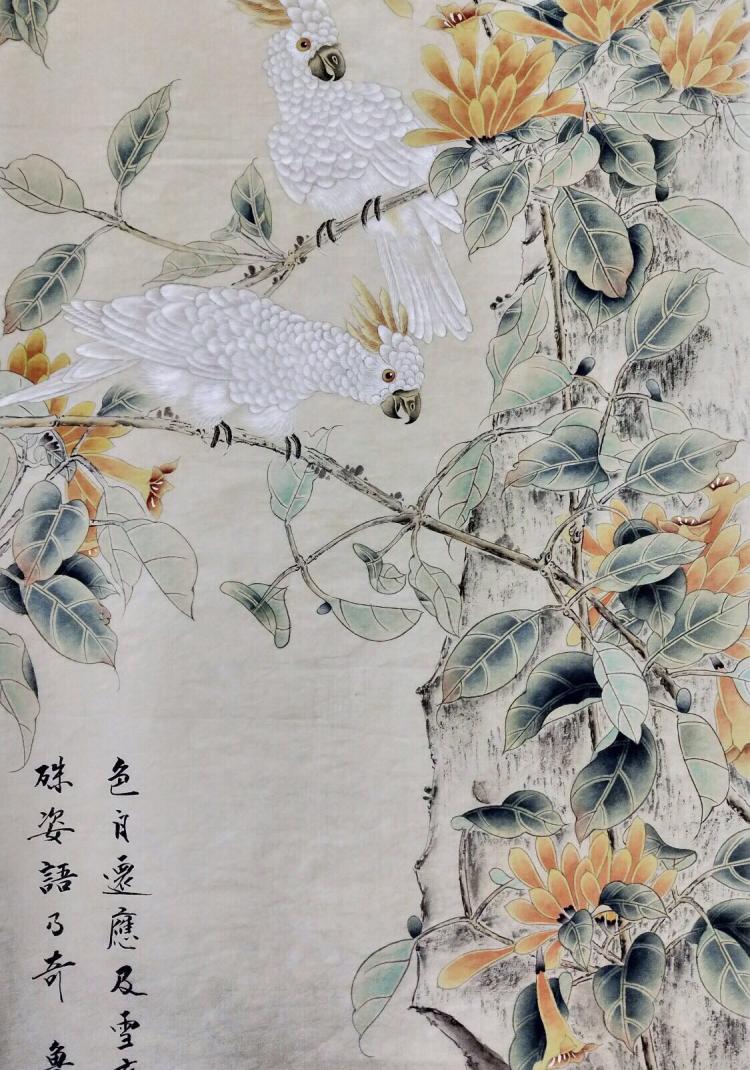 色白還應及雪
硃姿語乃奇